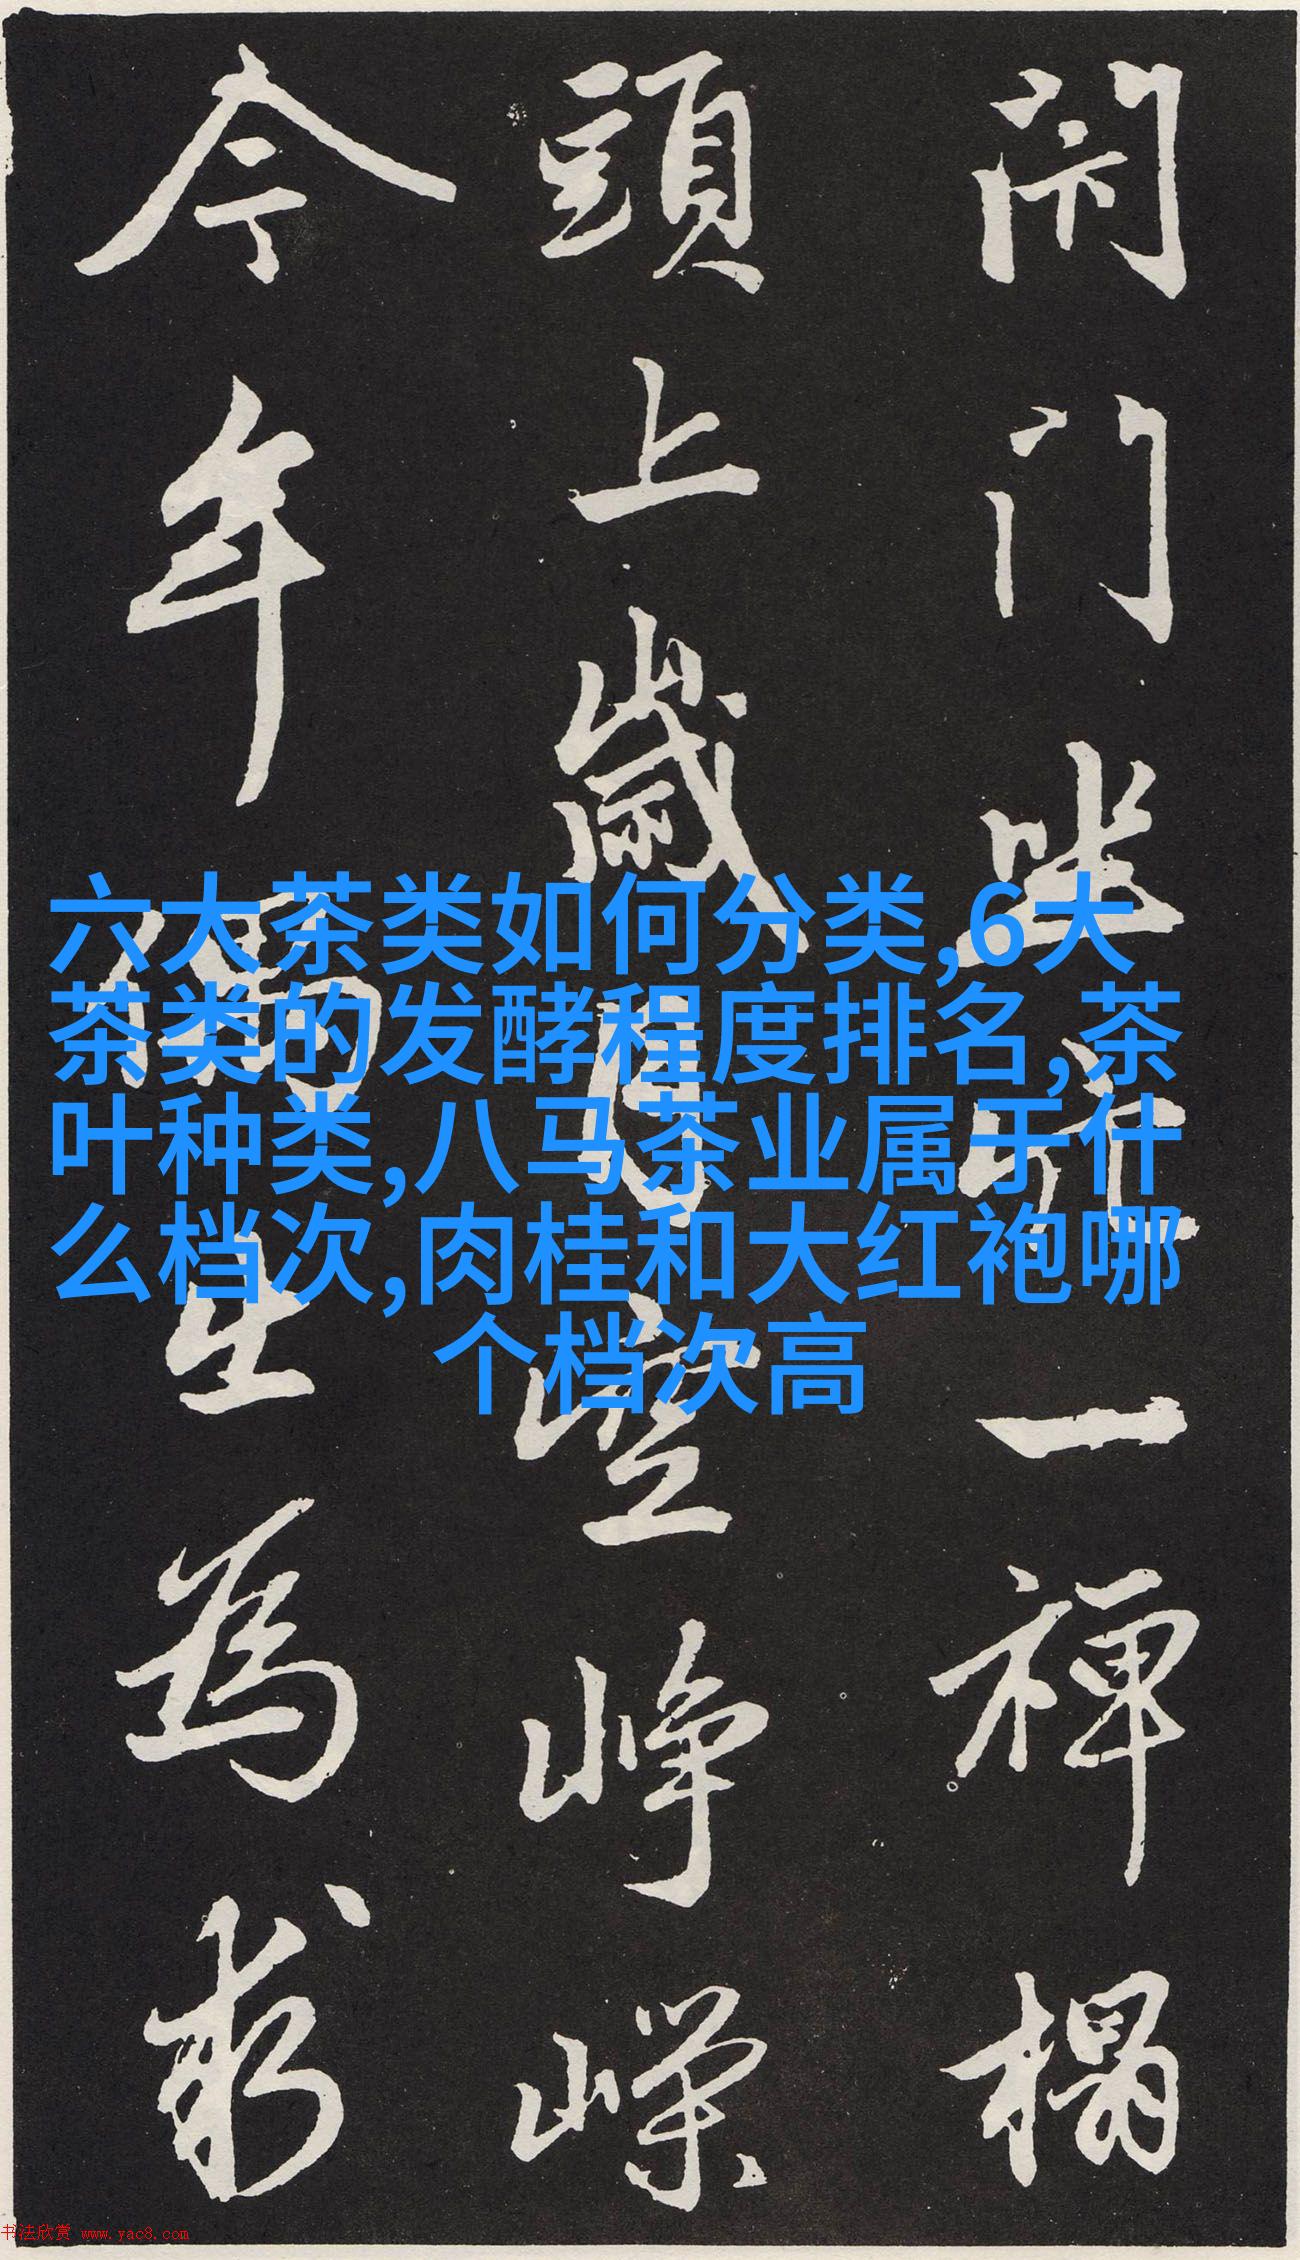 閉門坐穴一禪榻
頭上歲月空崢嶸
今年偶出為求
六大茶类如何分类,6大
茶类的发酵程度排名,茶
叶种类,八马茶业属于什
么档次,肉桂和大红袍哪
个档次高
书法欣赏 www.yac8.com